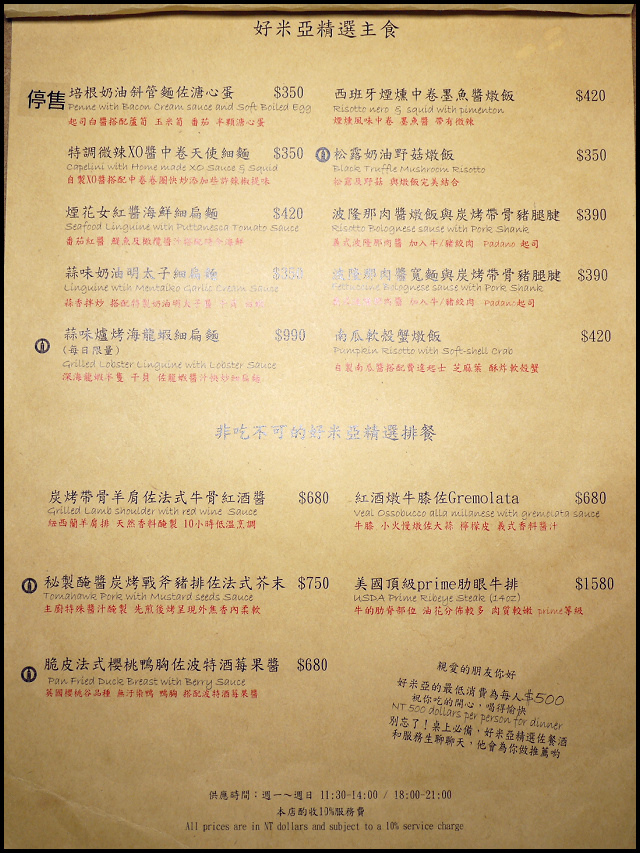 好米亞精選主食
停售
培根奶油斜管麵佐溏心蛋 $350
Penne with Bacon Cream sauce and Soft Boiled Egg
起司白醬搭配蘆筍 玉米筍 番茄 半顆溏心蛋
特調微辣XO醬中卷天使細麵 $350
Capelini with Home made XO Sauce & Squid
自製XO醬搭配中卷卷圈快炒添加些許辣椒提味
煙花女紅醬海鮮細扁麵 $420
Seafood Linguine with Puttanesca Tomato Sauce
番茄紅醬 鯷魚及橄欖醬汁搭配綜合海鮮
蒜味奶油明太子細扁麵 $350
Linguine with Mentaiko Garlic Cream Sauce
蒜香拌炒 搭配特製奶油明太子醬
蒜味爐烤海龍蝦細扁麵 $990
(每日限量)
Grilled Lobster Linguine with Lobster Sauce
深海龍蝦半隻 干貝 佐龍蝦醬汁快炒細扁麵
西班牙煙燻中卷墨魚醬燉飯 $420
Risotto nero & squid with pimenton
煙燻風味中卷 墨魚醬 帶有微辣
松露奶油野菇燉飯 $350
Black Truffle Mushroom Risotto
松露及野菇 與燉飯完美結合
波隆那肉醬燉飯與炭烤帶骨豬腿腱 $390
Risotto Bolognese sauce with Pork Shank
義式波隆那肉醬 加入牛/豬絞肉 Padano 起司
波隆那肉醬寬麵與炭烤帶骨豬腿腱 $390
Fettuccine Bolognese sauce with Pork Shank
加入牛/豬絞肉 Padano起司
南瓜軟殼蟹燉飯 $420
Pumpkin Risotto with Soft-shell Crab
自製南瓜醬搭配費達起士 芝麻葉 酥炸軟殼蟹
非吃不可的好米亞精選排餐
炭烤帶骨羊肩佐法式牛骨紅酒醬 $680
Grilled Lamb shoulder with red wine Sauce
紐西蘭羊肩排 天然香料醃製 10小時低溫烹調
秘製醃醬炭烤戰斧豬排佐法式芥末 $750
Tomahawk Pork with Mustard seeds Sauce
主廚特殊醬汁醃製 先煎後烤呈現外焦香內柔軟
脆皮法式櫻桃鴨胸佐波特酒莓果醬 $680
Pan Fried Duck Breast with Berry Sauce
英國櫻桃谷品種 無汙染鴨 鴨胸 搭配波特酒莓果醬
紅酒燉牛膝佐Gremolata $680
Veal Ossobucco alla milanese with gremolata sauce
牛膝 小火慢燉佐大蒜 檸檬皮 義式香料醬汁
美國頂級prime肋眼牛排 $1580
USDA Prime Ribeye Steak (14oz)
牛的肋脊部位 油花分佈較多 肉質較嫩 prime等級
親愛的朋友你好
好米亞的最低消費為每人$500
祝你吃的開心，喝得愉快
NT 500 dollars per person for dinner
別忘了！桌上必備，好米亞精選佐餐酒
和服務生聊聊天，他會為你做推薦喲
供應時間：週一～週日 11:30-14:00 / 18:00-21:00
本店酌收10%服務費
All prices are in NT dollars and subject to a 10% service charge